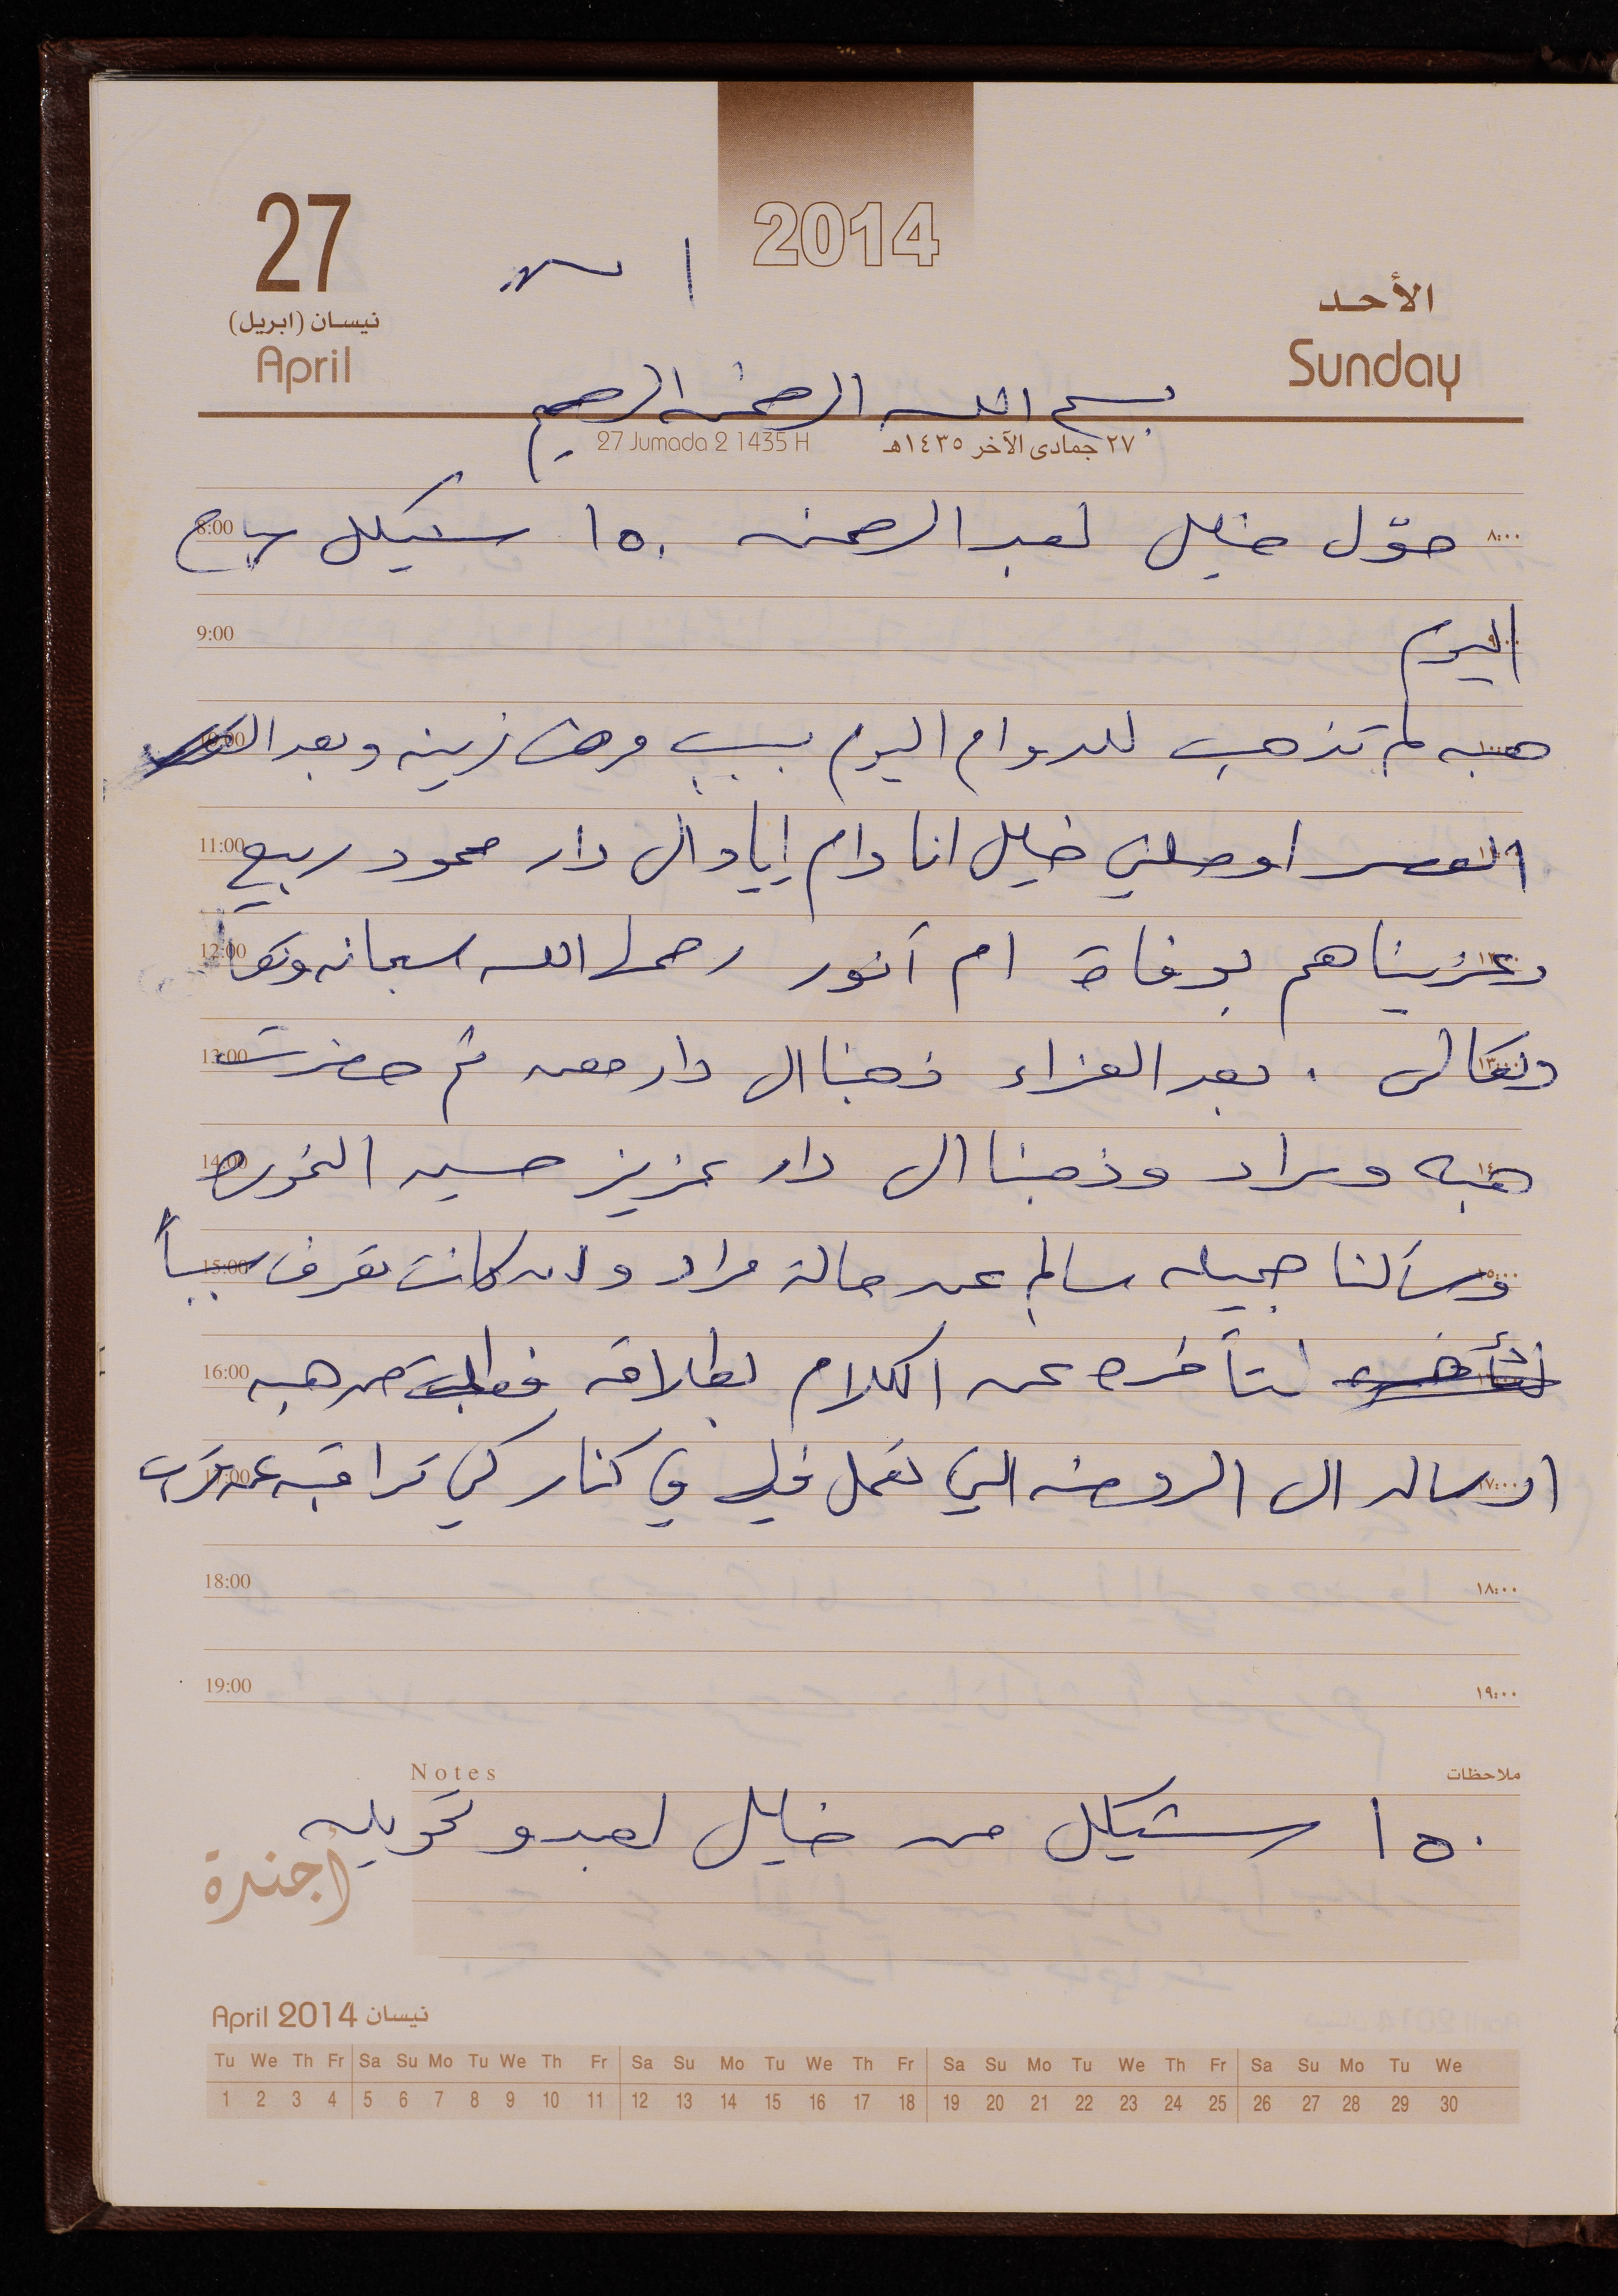 2014
27
نيسان (ابريل)
April
الأحد
Sunday
بسم الله الرحمن الرحيم
27 Jumada 2 1435 H ٢٧ جمادى الآخر ١٤٣٥هـ
8:00 حوّل خليل لعبد الرحمن ١٥٠ شيكل ٨:٠٠
9:00 اليوم ٩:٠٠
10:00 هبه لم تذهب للدوام اليوم بسبب مرض زينه وبعد ١٠:٠٠
11:00 العصر اوصلني خليل انا وام إياد الى دار محمود ربيع ١١:٠٠
12:00 وعزيناهم بوفاة ام أنور رحمها الله سبحانه وتعا ١٢:٠٠
13:00 وتعالى . بعد العزاء ذهبنا الى دار معن ثم حضرت ١٣:٠٠
14:00 هبه ومراد وذهبنا الى دار عزيز حسين ١٤:٠٠
15:00 وسألنا جميله سالم عن حالة مراد وان كانت تعرف سبباً ١٥:٠٠
16:00 لتأخره عن الكلام بطلاقه فطلبت من هبه ١٦:٠٠
17:00 ارساله الى الروضه التي تعمل فيها في كنار كي تراقبه عن قرب ١٧:٠٠
18:00 ١٨:٠٠
19:00 ١٩:٠٠
Notes ملاحظات
١٥٠ شيكل من خليل لعبدو تحويله
أجندة
April 2014 نيسان
Tu We Th Fr Sa Su Mo Tu We Th Fr Sa Su Mo Tu We Th Fr Sa Su Mo Tu We Th Fr Sa Su Mo Tu We
1 2 3 4 5 6 7 8 9 10 11 12 13 14 15 16 17 18 19 20 21 22 23 24 25 26 27 28 29 30